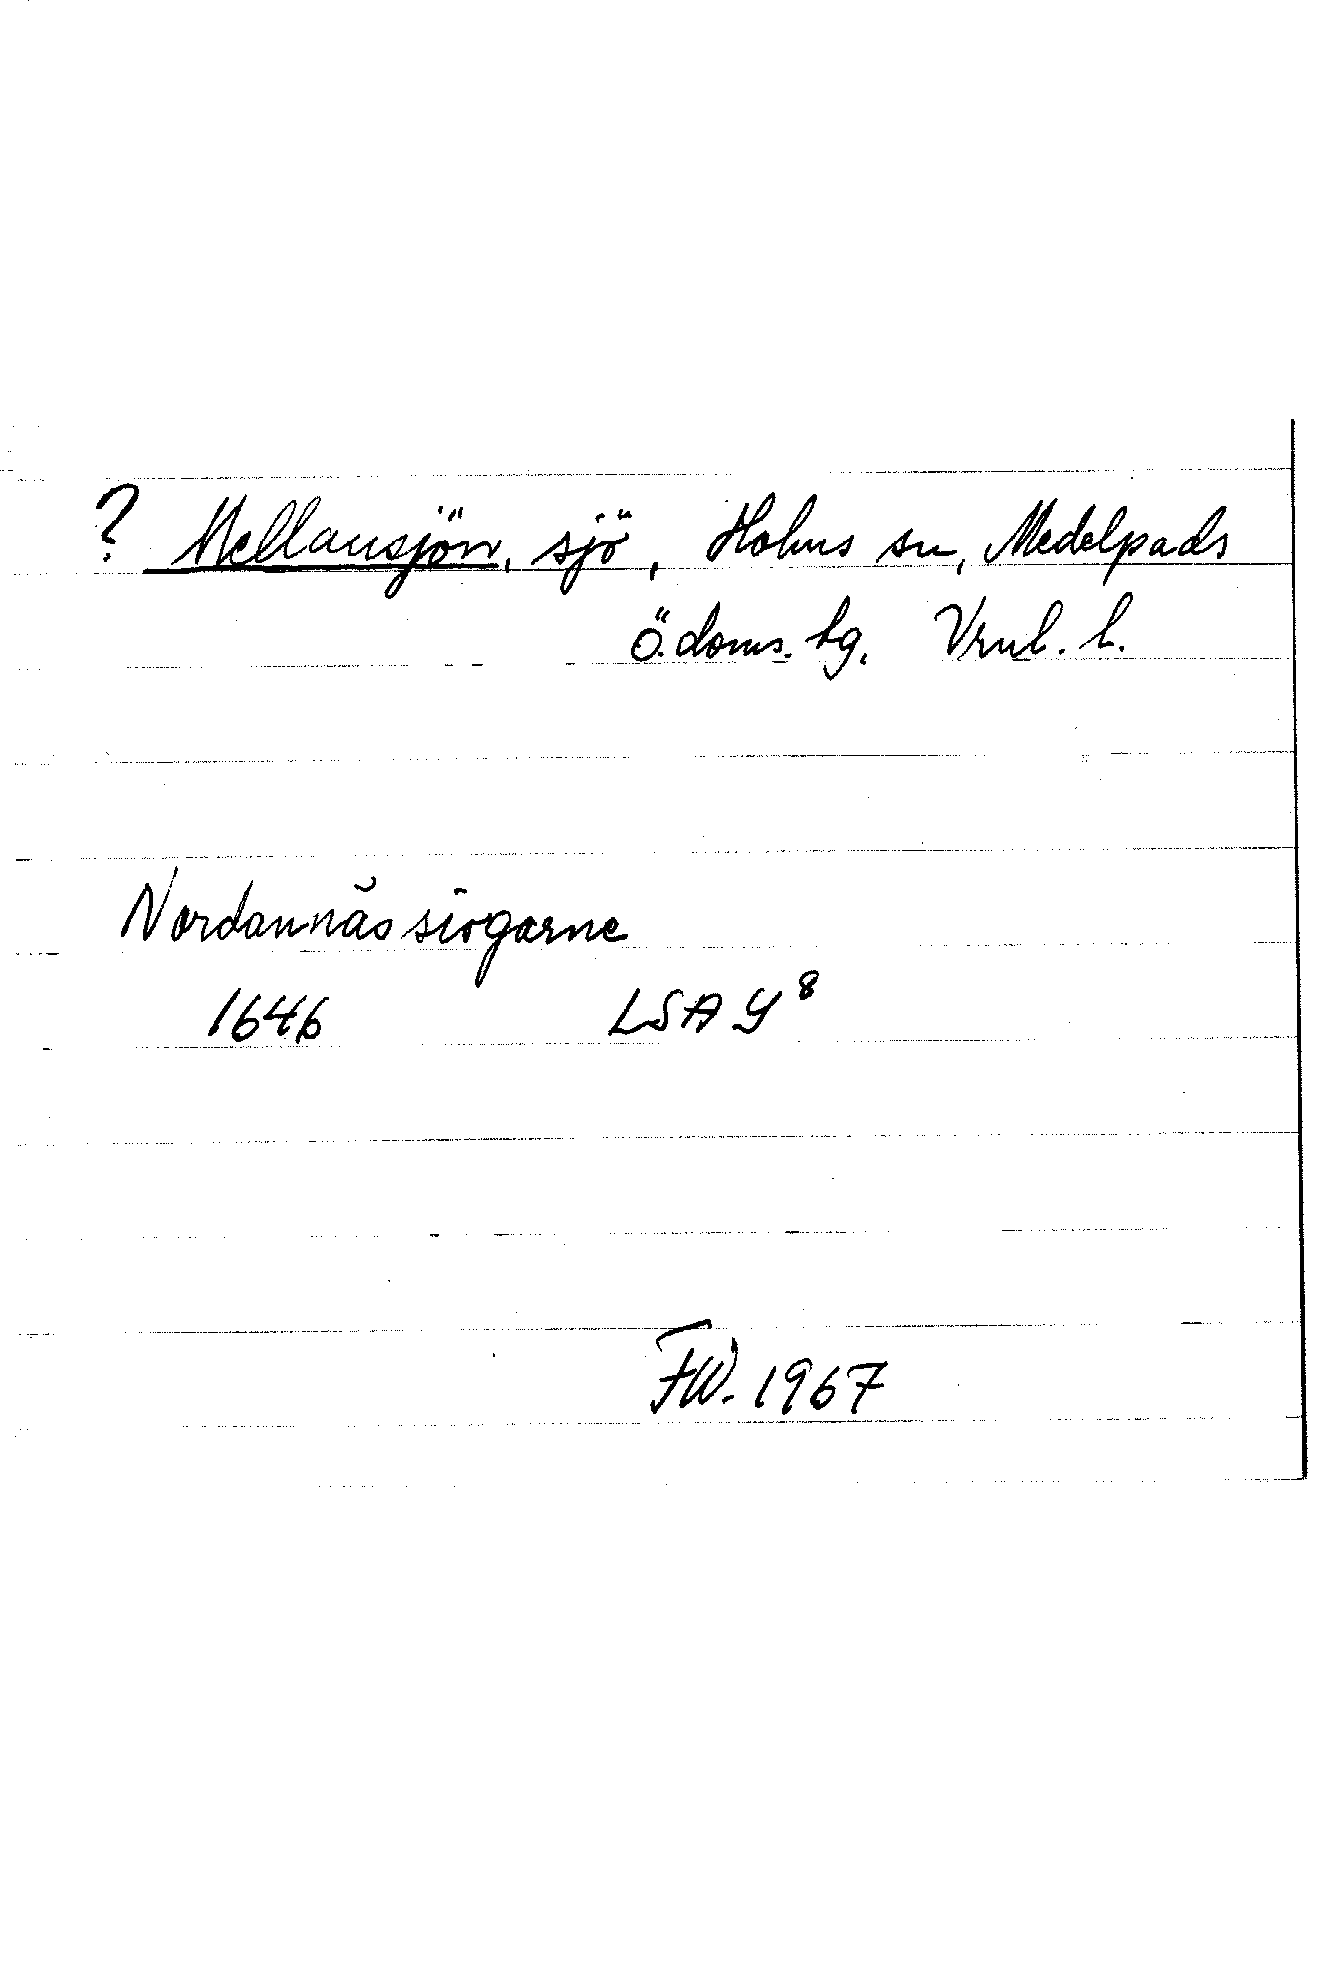 ? Mellansjön, sjö, Holms sn, Medelpads
Ö. doms. tg. Vrnl. l.
Nordannäs siögarne
1646 LSA Y⁸
FW. 1967